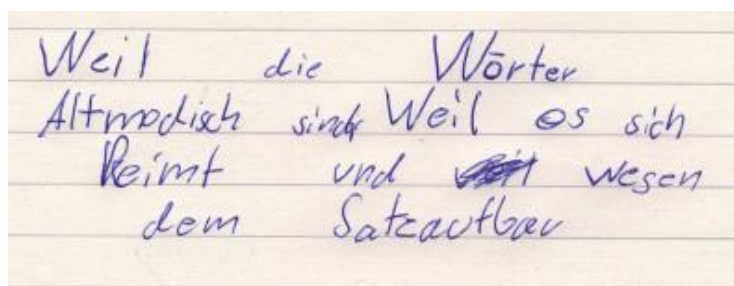 Weil die Wörter
Altmodisch sind Weil es sich
Reimt und wegen
dem Satzaufbau